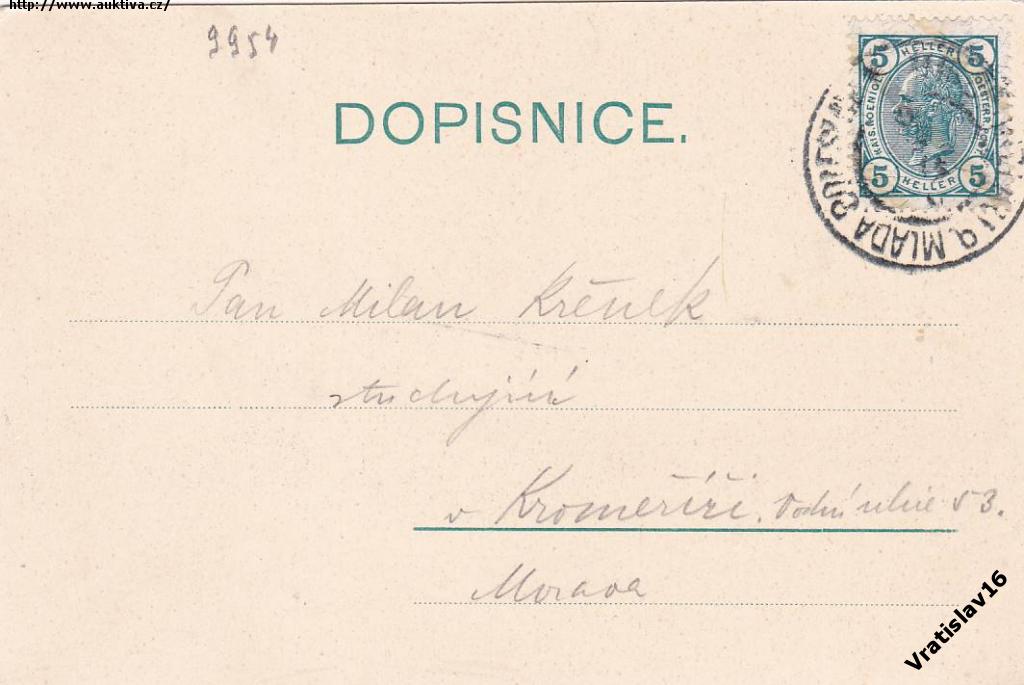 http://www.auktiva.cz/
9954
DOPISNICE.
5 HELLER 5
KAIS. KOENIGL. OESTERR. POST.
5 HELLER 5
MLADA
Pan Milan Křenek
studující
v Kroměříži. Vodní ulice 53.
Morava
Vratislav16